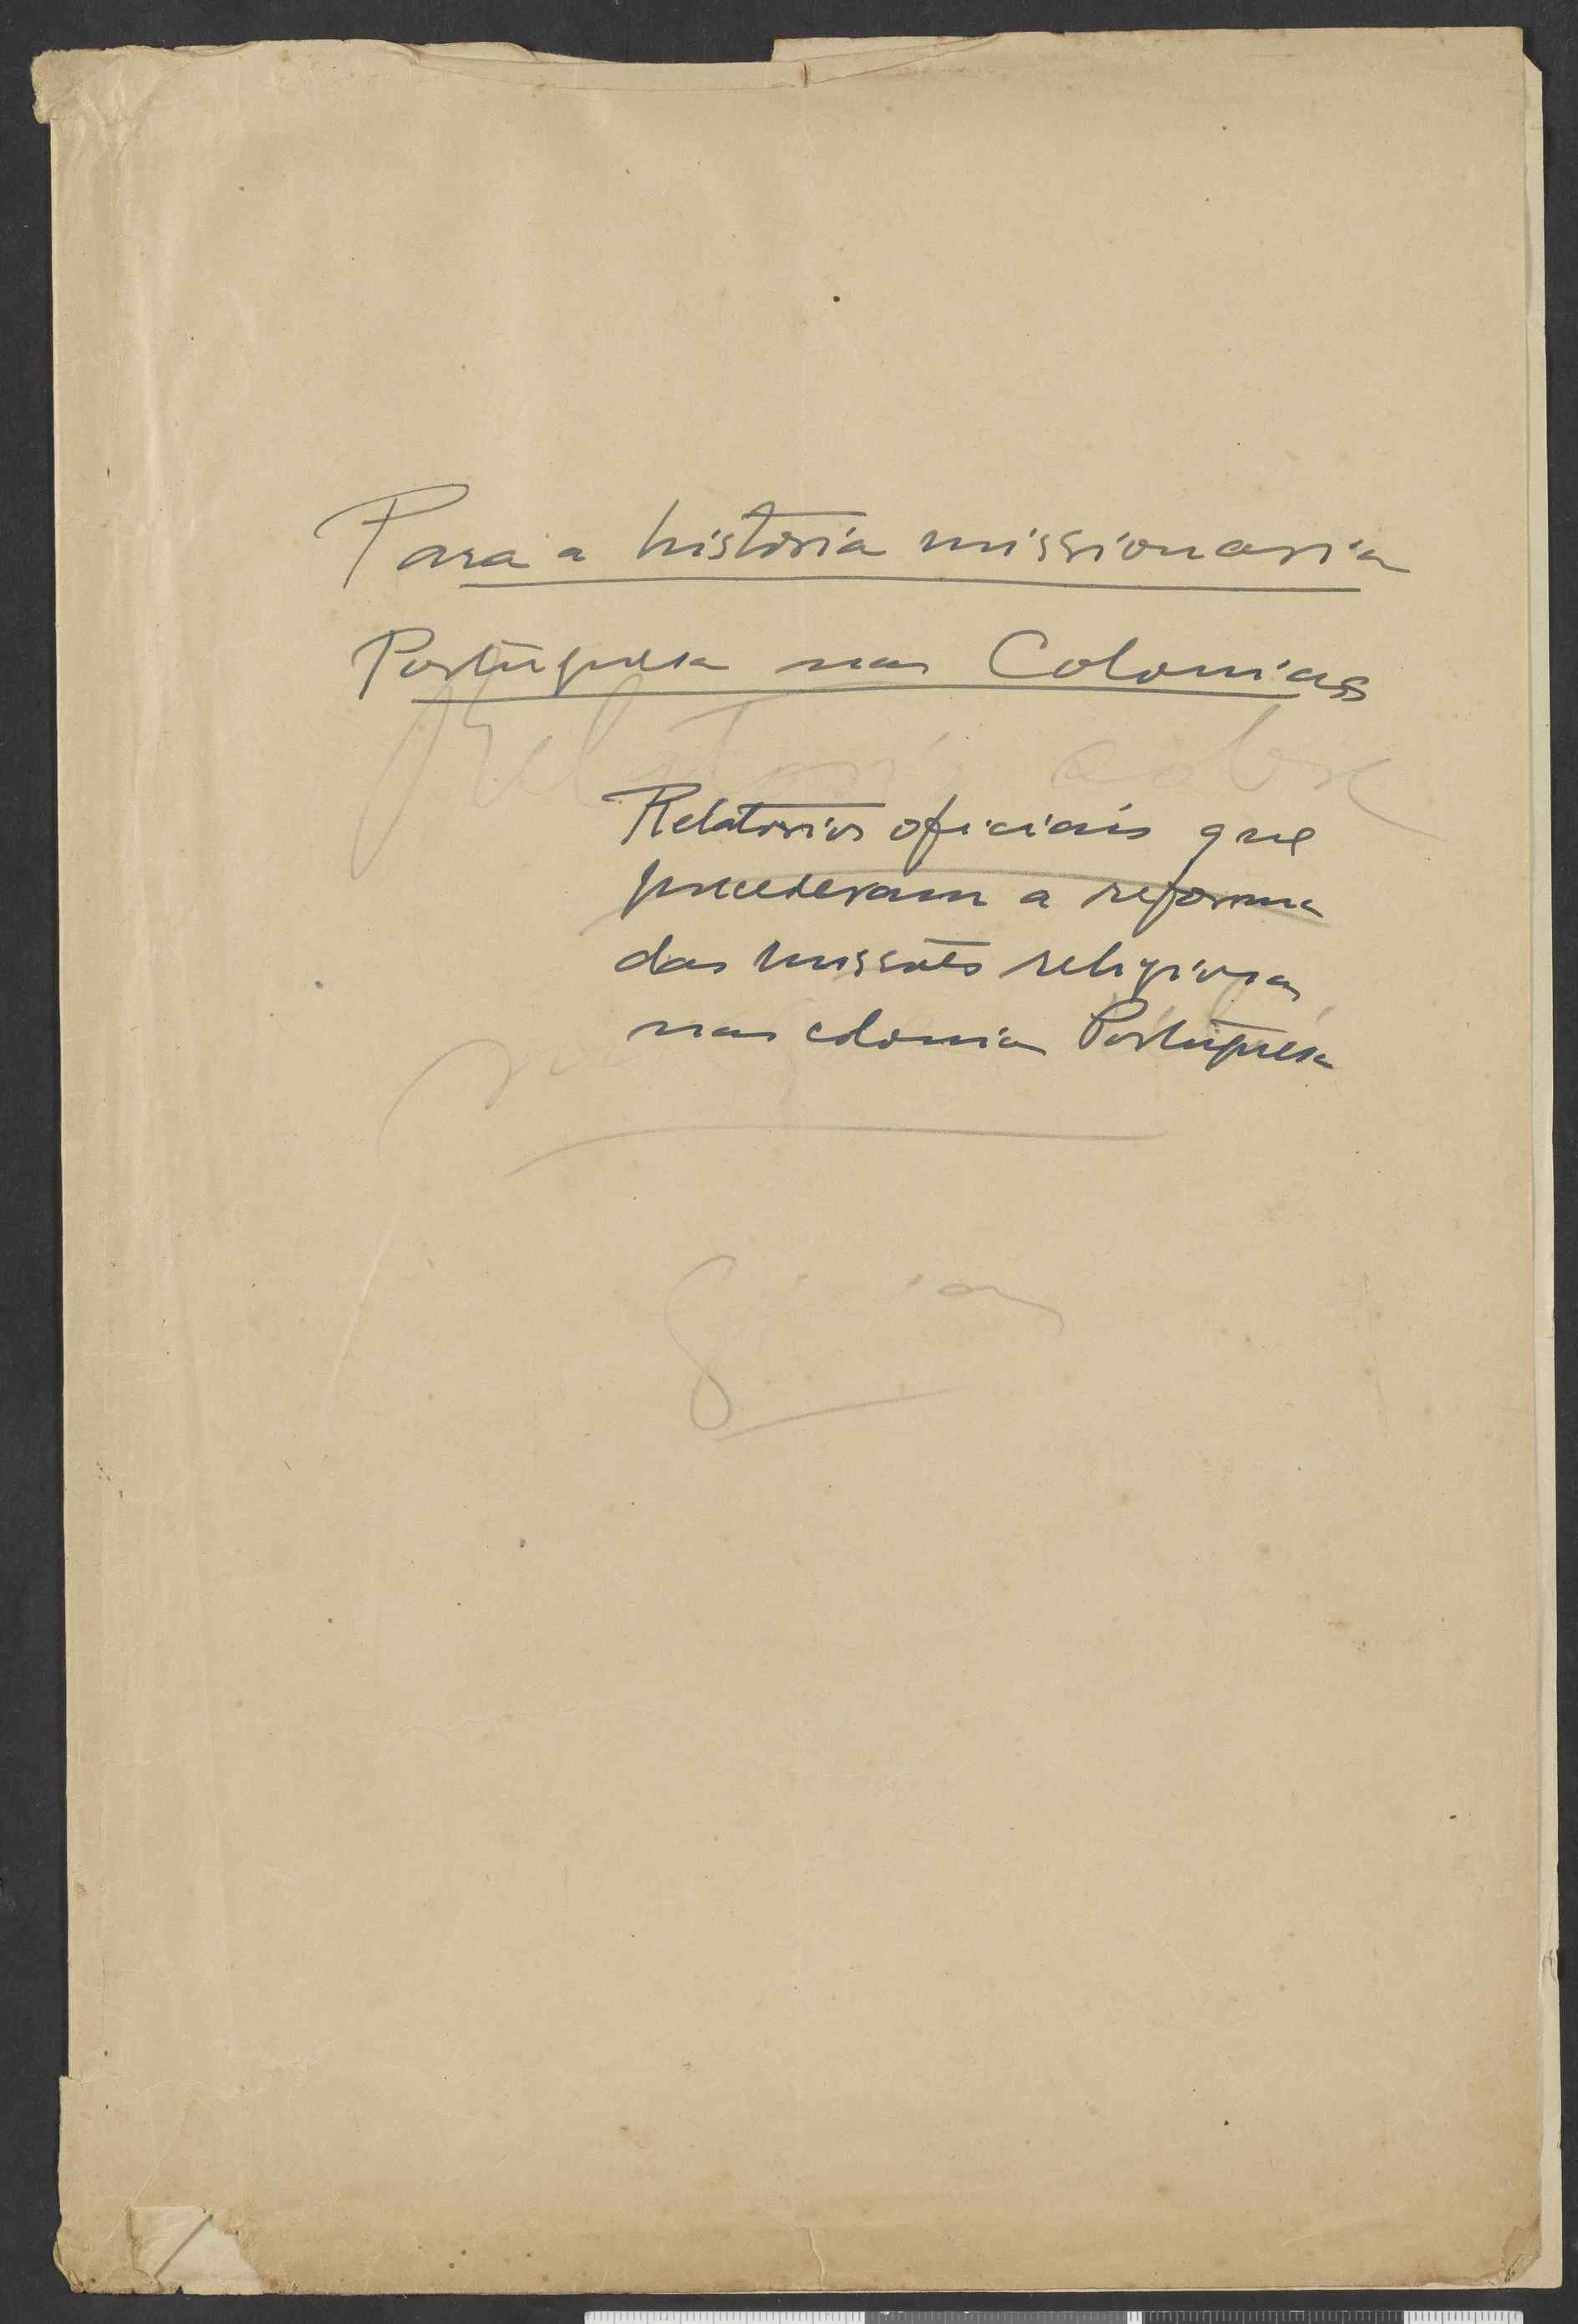 Para a historia missionaria
Portuguesa nas Colonias
Relatorio sobre
Relatorios oficiais que
precederam a reforma
das missões religiosas
nas colonias Portuguesa